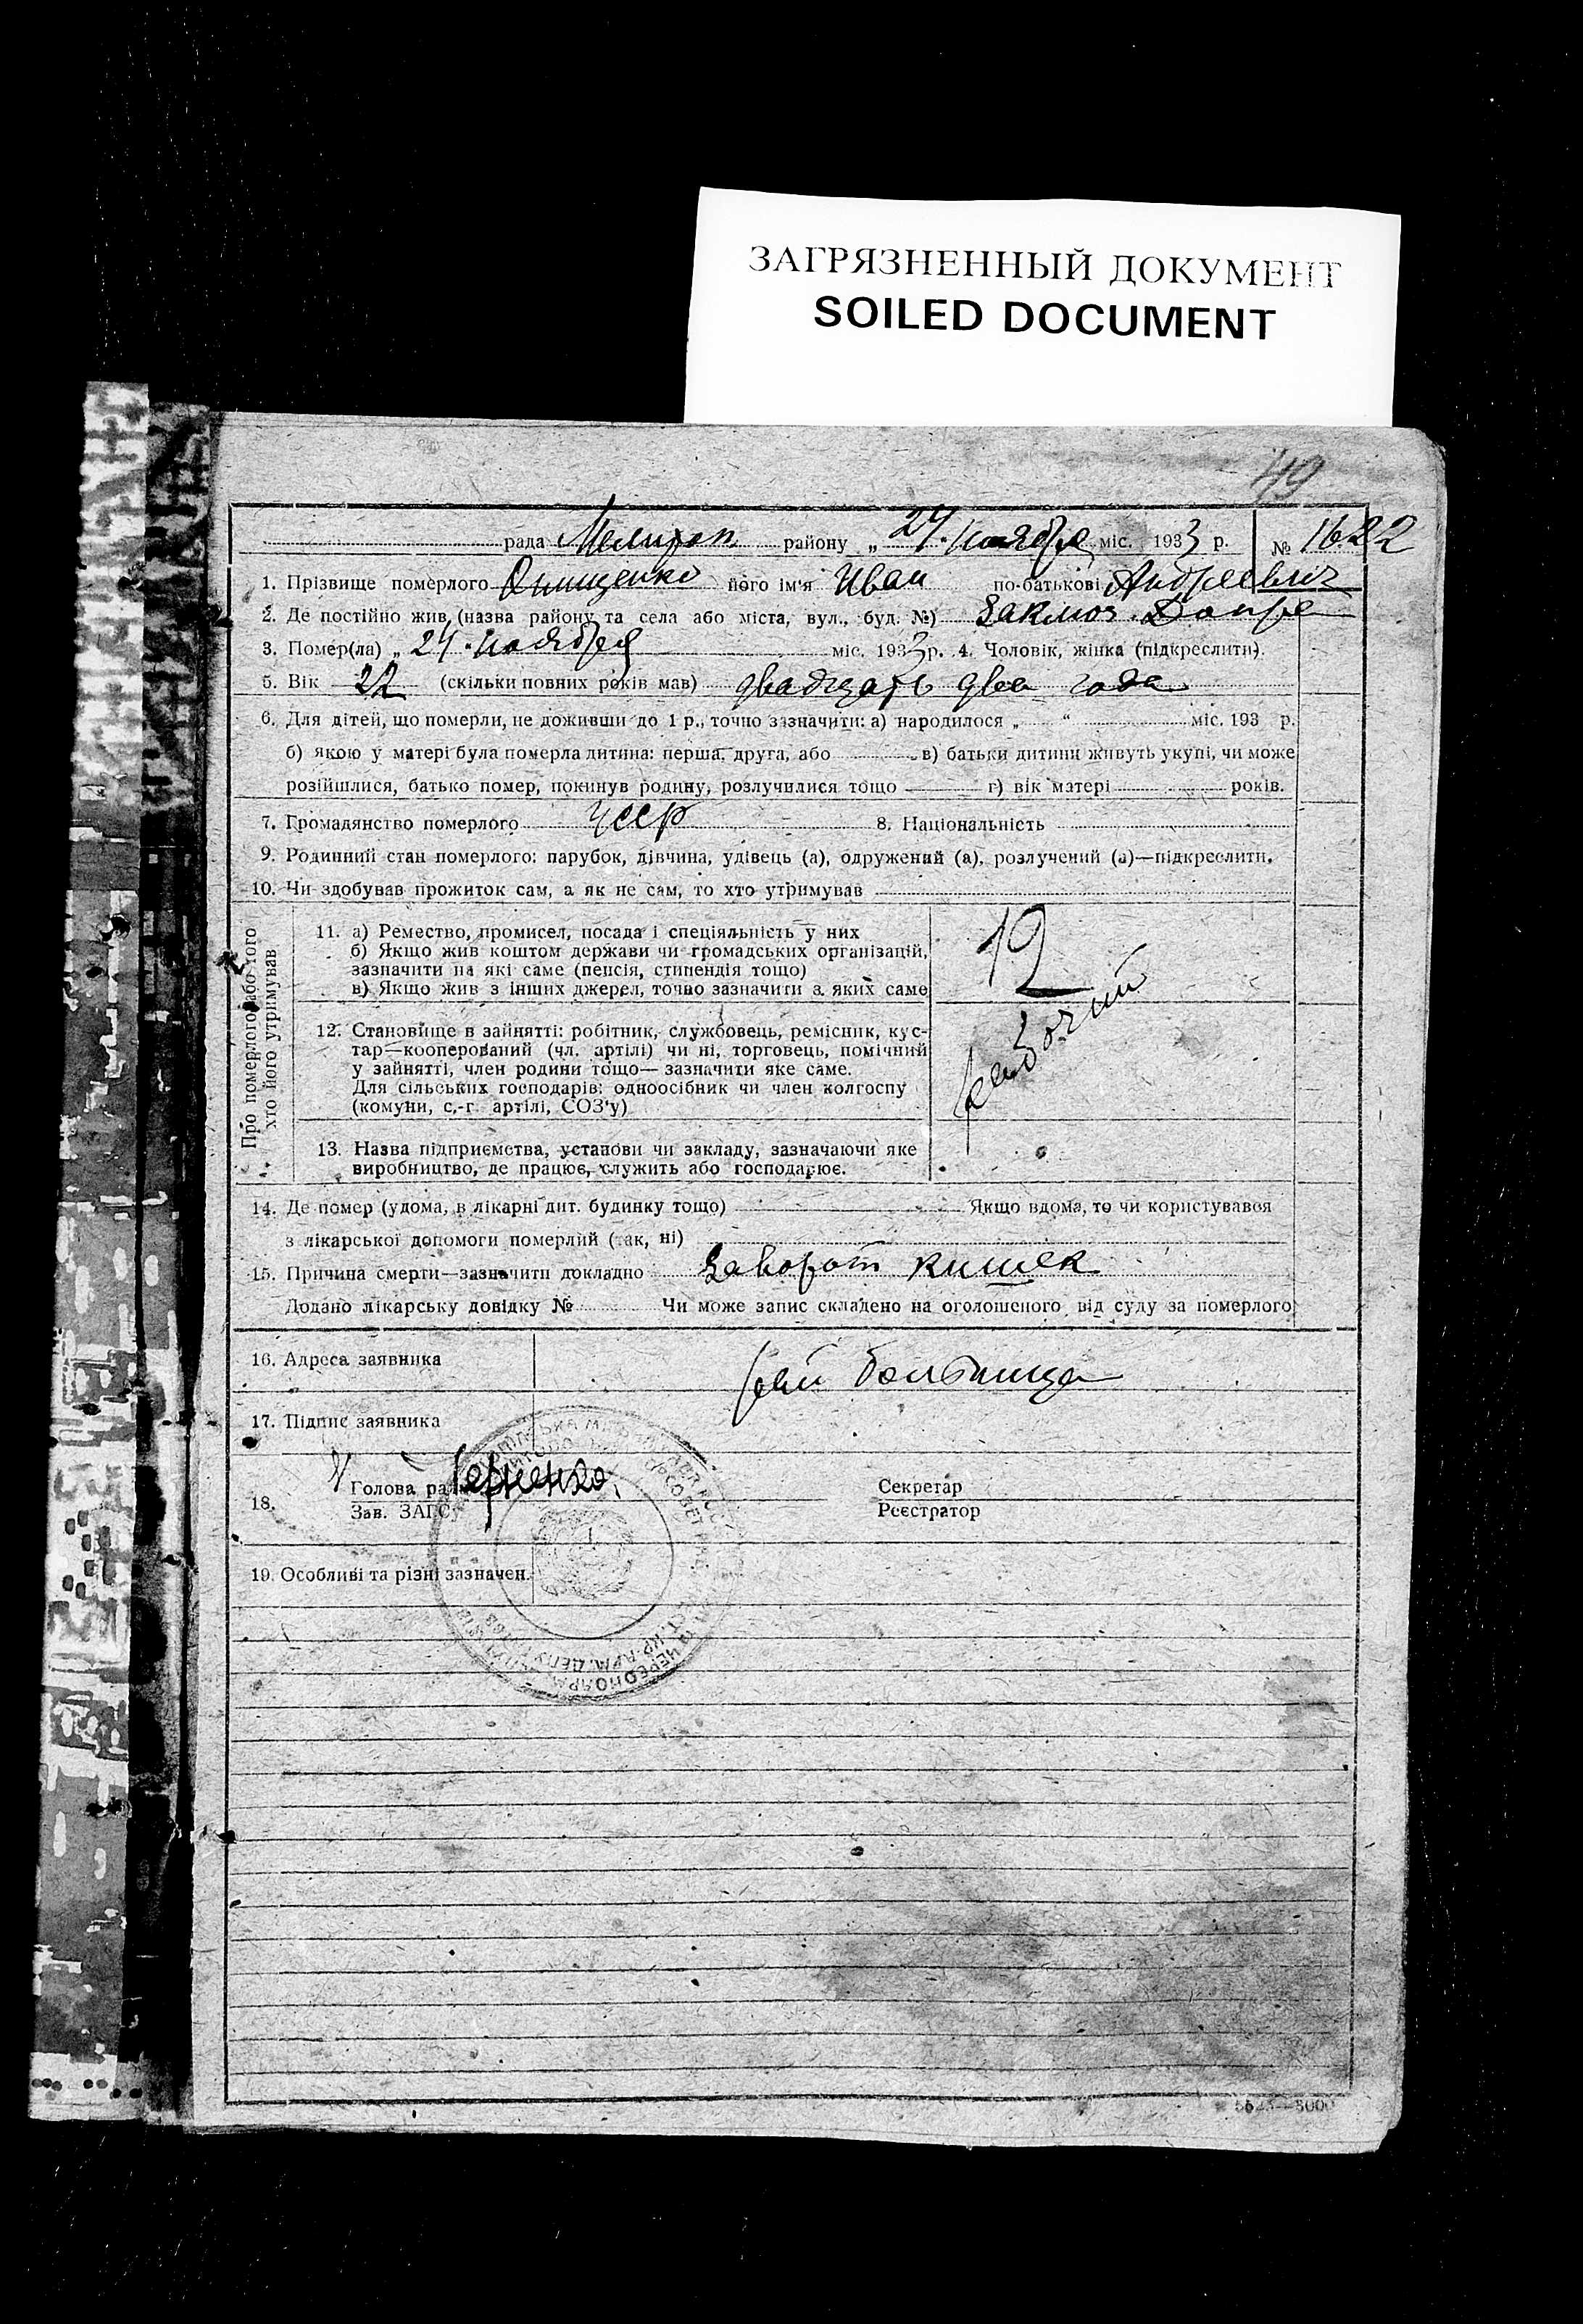 ЗАГРЯЗНЕННЫЙ ДОКУМЕНТ
SOILED DOCUMENT
49
рада Мелитоп району „ 24. ноября міс. 1933 р. № 1622
1. Прізвище померлого Онищенко його ім'я Иван по-батькові Андреевич
2. Де постійно жив (назва району та села або міста, вул., буд. №) Заключ. Допра
3. Помер(ла) „ 24. ноября міс. 1933 р. 4. Чоловік, жінка (підкреслити).
5. Вік 22 (скільки повних років мав) двадцать два года
6. Для дітей, що померли, не доживши до 1 р., точно зазначити: а) народилося „ “ міс. 193 р.
б) якою у матері була померла дитина: перша, друга, або в) батьки дитини живуть укупі, чи може
розійшлися, батько помер, покинув родину, розлучилися тощо г) вік матері років.
7. Громадянство померлого УССР 8. Національність
9. Родинний стан померлого: парубок, дівчина, удівець (а), одружений (а), розлучений (а)—підкреслити.
10. Чи здобував прожиток сам, а як не сам, то хто утримував
Про померлого або того
хто його утримував
11. а) Ремество, промисел, посада і спеціяльність у них
б) Якщо жив коштом держави чи громадських організацій,
зазначити на які саме (пенсія, стипендія тощо)
в) Якщо жив з інших джерел, точно зазначити з яких саме
12
12. Становище в зайнятті: робітник, службовець, ремісник, кус-
тар—кооперований (чл. артілі) чи ні, торговець, помічний
у зайнятті, член родини тощо— зазначити яке саме.
Для сільських господарів: одноосібник чи член колгоспу
(комуни, с.-г. артілі, СОЗ'у)
рабочий
13. Назва підприємства, установи чи закладу, зазначаючи яке
виробництво, де працює, служить або господарює.
14. Де помер (удома, в лікарні дит. будинку тощо) Якщо вдома, то чи користувався
з лікарської допомоги померлий (так, ні)
15. Причина смерти—зазначити докладно Заворот кишек
Додано лікарську довідку № Чи може запис складено на оголошеного від суду за померлого
16. Адреса заявника
рай больница
17. Підпис заявника
18. Голова ради Секретар
Зав. ЗАГС'у Реєстратор
19. Особливі та різні зазначен.